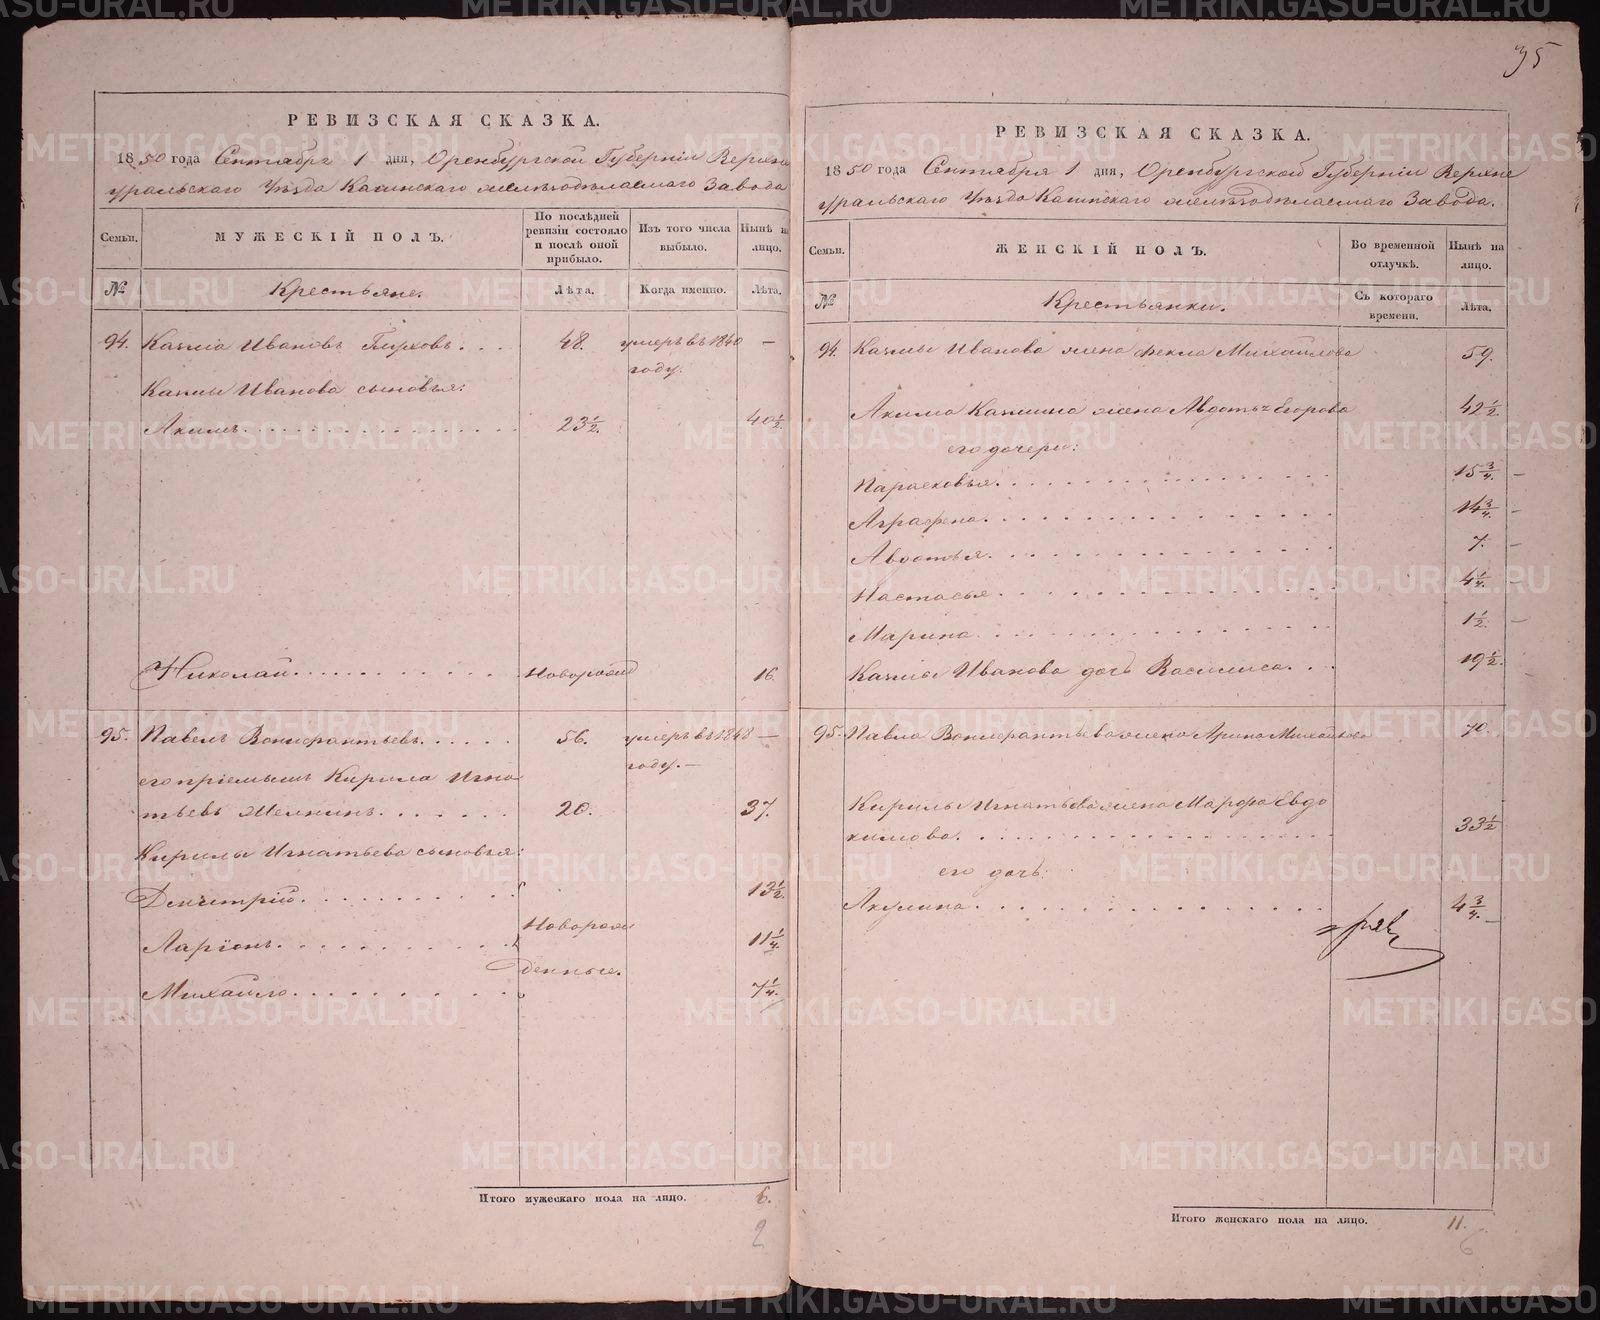 35
РЕВИЗСКАЯ СКАЗКА.
1850 года Сентября 1 дня, Оренбургской Губерніи Верхне
уральскаго Уѣзда Кагинскаго желѣзодѣлаемаго Завода
Семьи.
МУЖЕСКІЙ ПОЛЪ.
По послѣдней ревизіи состояло и послѣ оной прибыло.
Изъ того числа выбыло.
Нынѣ на лицо.
№
Крестьяне.
Лѣта.
Когда именно.
Лѣта.
94. Казма Ивановъ 48. умеръ въ 1840 —
году.
Казмы Иванова сыновья:
Акимъ 23½. 40½.
Николай Новорожд 16.
95. Павелъ Вонифантьевъ 56. умеръ въ 1848 —
году. —
его пріемышъ Кирила Игна
тьевъ 20. 37.
Кирилы Игнатьева сыновья:
Дмитрій 13½.
Ларіонъ Новорож 11¼.
денные.
Михайло 7¼.
Итого мужескаго пола на лицо. 6.
2
РЕВИЗСКАЯ СКАЗКА.
1850 года Сентября 1 дня, Оренбургской Губерніи Верхне
уральскаго Уѣзда Кагинскаго желѣзодѣлаемаго Завода.
Семьи.
ЖЕНСКІЙ ПОЛЪ.
Во временной отлучкѣ.
Нынѣ на лицо.
№
Крестьянки.
Съ котораго времени.
Лѣта.
94. Казмы Иванова жена Фекла Михайлова 59.
Акима Казмина жена Авдотья Егорова 42½.
его дочери:
Парасковья 15¾. —
Аграфена 14¾. —
Авдотья 7. —
Настасья 4¼. —
Марина 1½. —
Казмы Иванова дочь Василиса 19½.
95. Павла Вонифантьева жена Арина Михайлова 70.
Кирилы Игнатьева жена Марфа Евдо
кимова 33½
его дочь:
Акулина 4¾.
Итого женскаго пола на лицо. 11.
6
METRIKI.GASO-URAL.RU